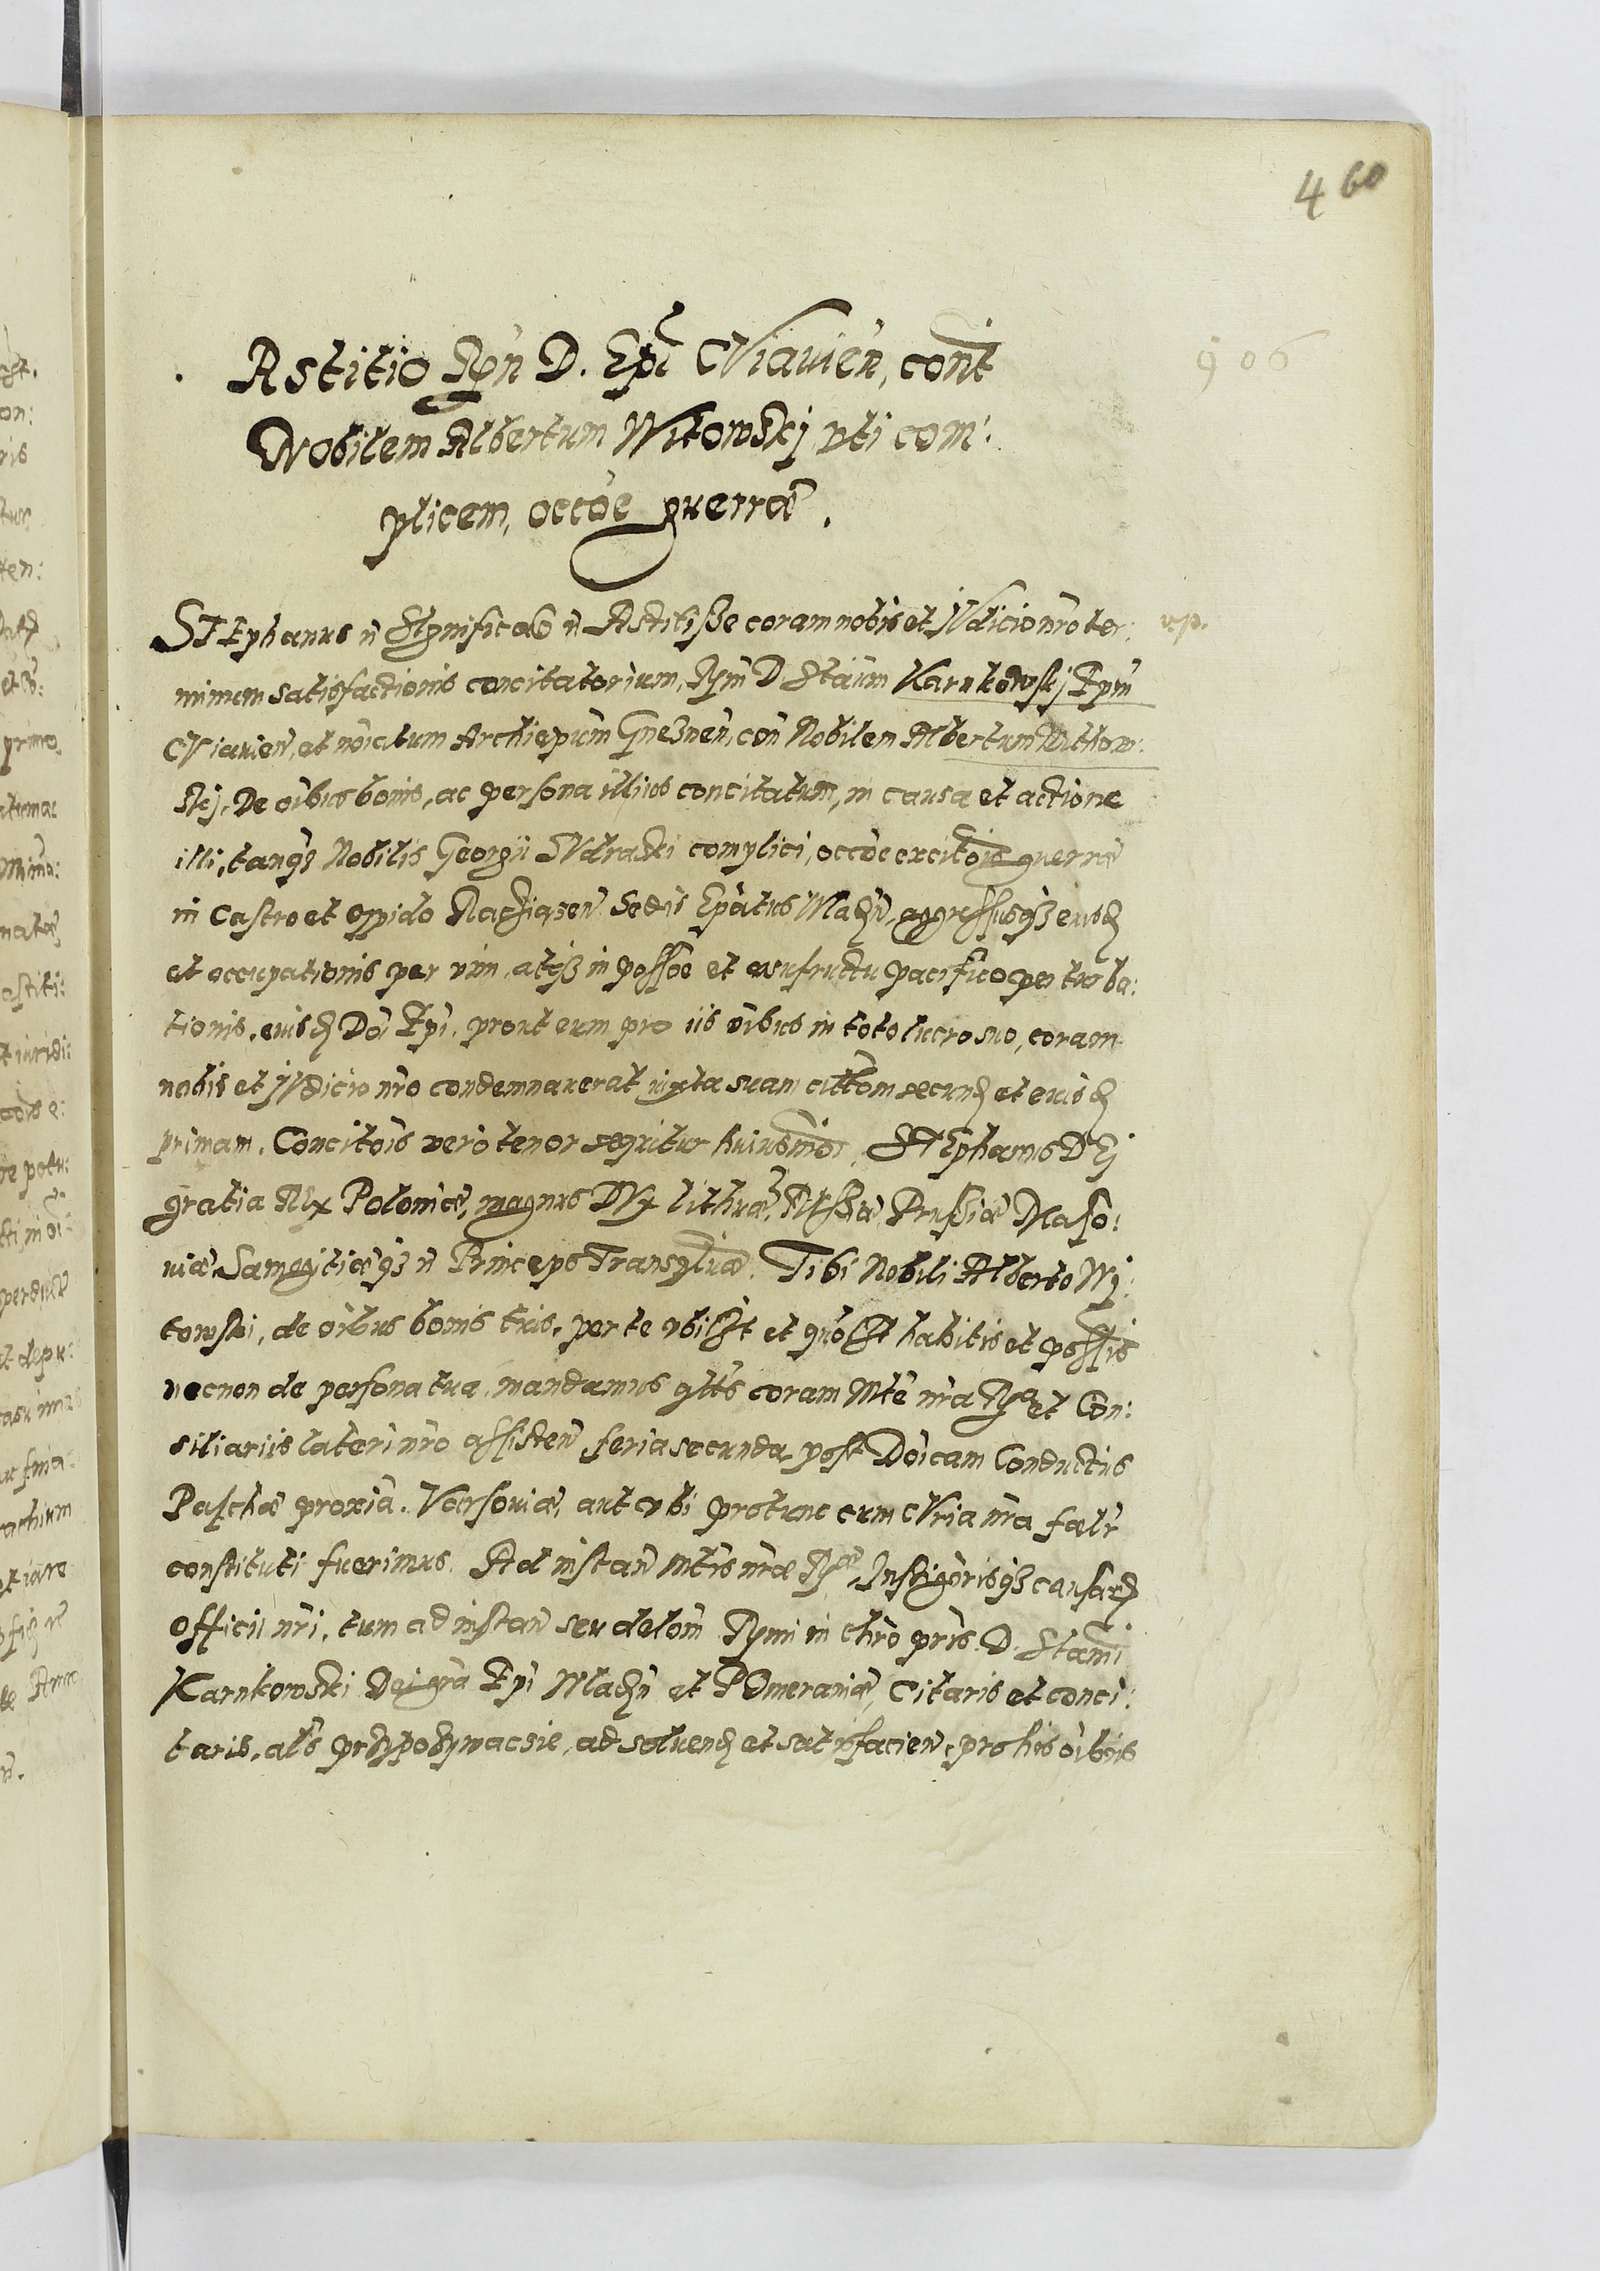 460
906
Astitio Rṁi D. Epi CViavień, cont̄
Nobilem Albertum Witowskj vti com:
plicem, occōe guerræ.
STEphanus ń SIgnificam9 ń Astitiße coram nobis et IVdicio nr̄o ter: vp.
minum satisfactionis concitatorium, Rṁm D Stāum Karnkowskj Epm̄
CViavień, et nōiatum Archiepūm Gnesneń, con̄ Nobilem Albertum Withow:
skj, De oībus bonis, ac persona illius concitatum, in causa et actione
illi, tanq3 Nobilis Georgii SVdraski complici, occōe excitōis guerræ
in Castro et oppido Raciąseń Sedis Epātus Wladń, aggressusq3 eiusd
et occupationis per vim, atq3 in possōe et vsufructu pacifico perturba:
tionis, eiusd Dōi Epi, prout eum pro iis oībus in toto lucro suo, coram
nobis et IVdicio nr̄o condemnaverat iuxta suam citt̄om secund et eiusd
primam. Concitōis vero tenor sequitur huiusmōi. STEphanus DEj
gratia REx Poloniæ, magnus DVx Lithuæ, RVssiæ, Prussiæ Maso:
uiæ, Samogitiæq3 ń Princeps Transyluæ. Tibi Nobili Alberto Wj:
towski, de oībus bonis tuis, per te vbilt et quolt habitis et possis
necnon de persona tua, mandamus qtt̄s coram Mte nr̄a Ra et Con:
siliariis lateri nr̄o assisteń feria secunda post Doīcam Conductus
Paschæ proxīa. Varsouiæ, aut vbi protunc cum CVria nr̄a fælr̄
constituti fuerimus. Ad instań Mtis nr̄æ Ræ, Instigōrisq3 causard
officii nr̄i, tum ad instań seu delōm Rṁi in chr̄o pr̄is D. Stanī
Karnkowski Dei grā Epi Wladń et POmeraniæ, Citaris et conci:
taris, al̄s przypozywacsie, ad soluend et satisfacień, pro his oībus